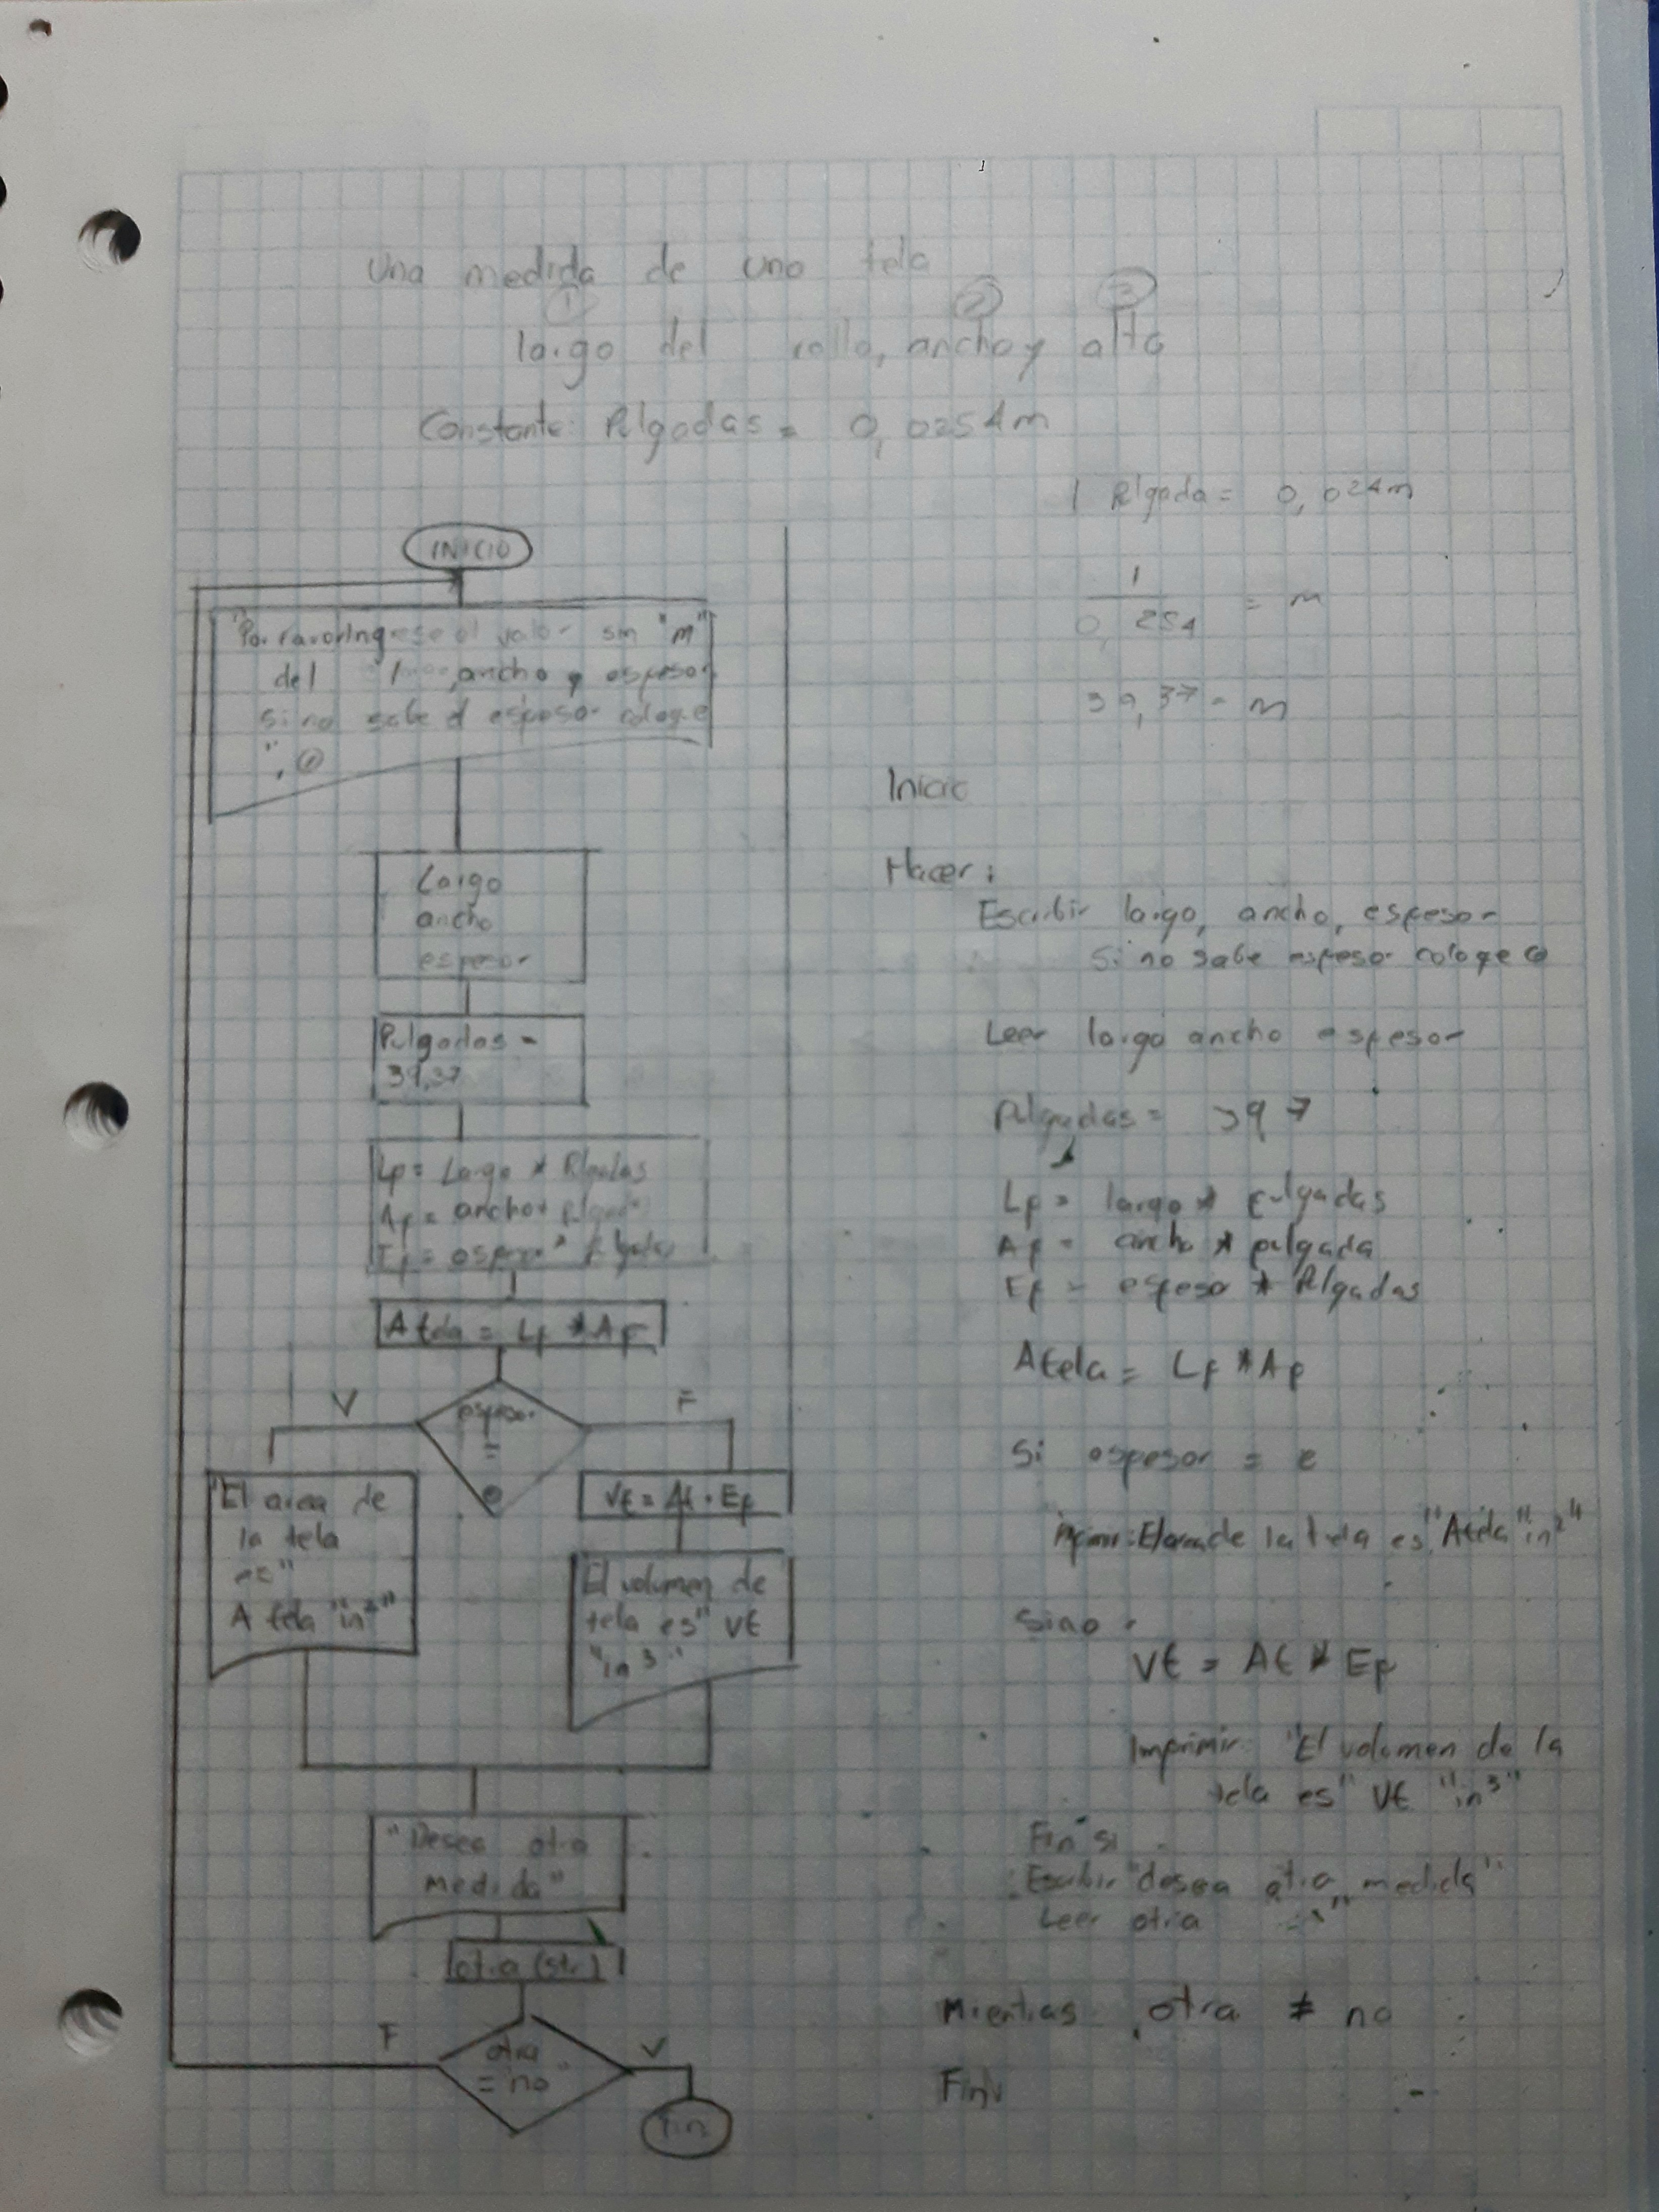 Una medida de una tela
① ② ③
largo del rollo, ancho y alto
Constante: Pulgadas = 0,0254m
1 Pulgada = 0,024m
1
0, 254
= m
39,37 = m
INICIO
"Por favor Ingrese el valor sin "m"
del ancho y espesor
si no sabe el espesor coloque
", 0
Largo
ancho
espesor
Pulgadas =
39,37
Lp = Largo * Pulgadas
Ap = ancho *
Ep = espesor *
Atela = Lp * Ap
espesor
=
0
V
F
"El area de
la tela
es"
A tela "in²"
Vt = At * Ep
El volumen de
tela es" Vt
"in3"
"Desea otra
medida"
otra (str)
otra
= "no"
F
V
Fin
Inicio
Hacer:
Escribir largo, ancho, espesor
Si no sabe espesor coloque 0
Leer largo ancho espesor
Pulgadas = 39 7
Lp = largo * pulgadas
Ap = ancho * pulgada
Ep = espeso * Pulgadas
Atela = Lp * Ap
Si espesor = 0
de la tela es "Atela "in²"
Sino:
Vt = At * Ep
Imprimir "El volumen de la
tela es" Vt "in3"
Fin si
Escribir "desea otra medida"
Leer otra
Mientras otra ≠ no
Fin